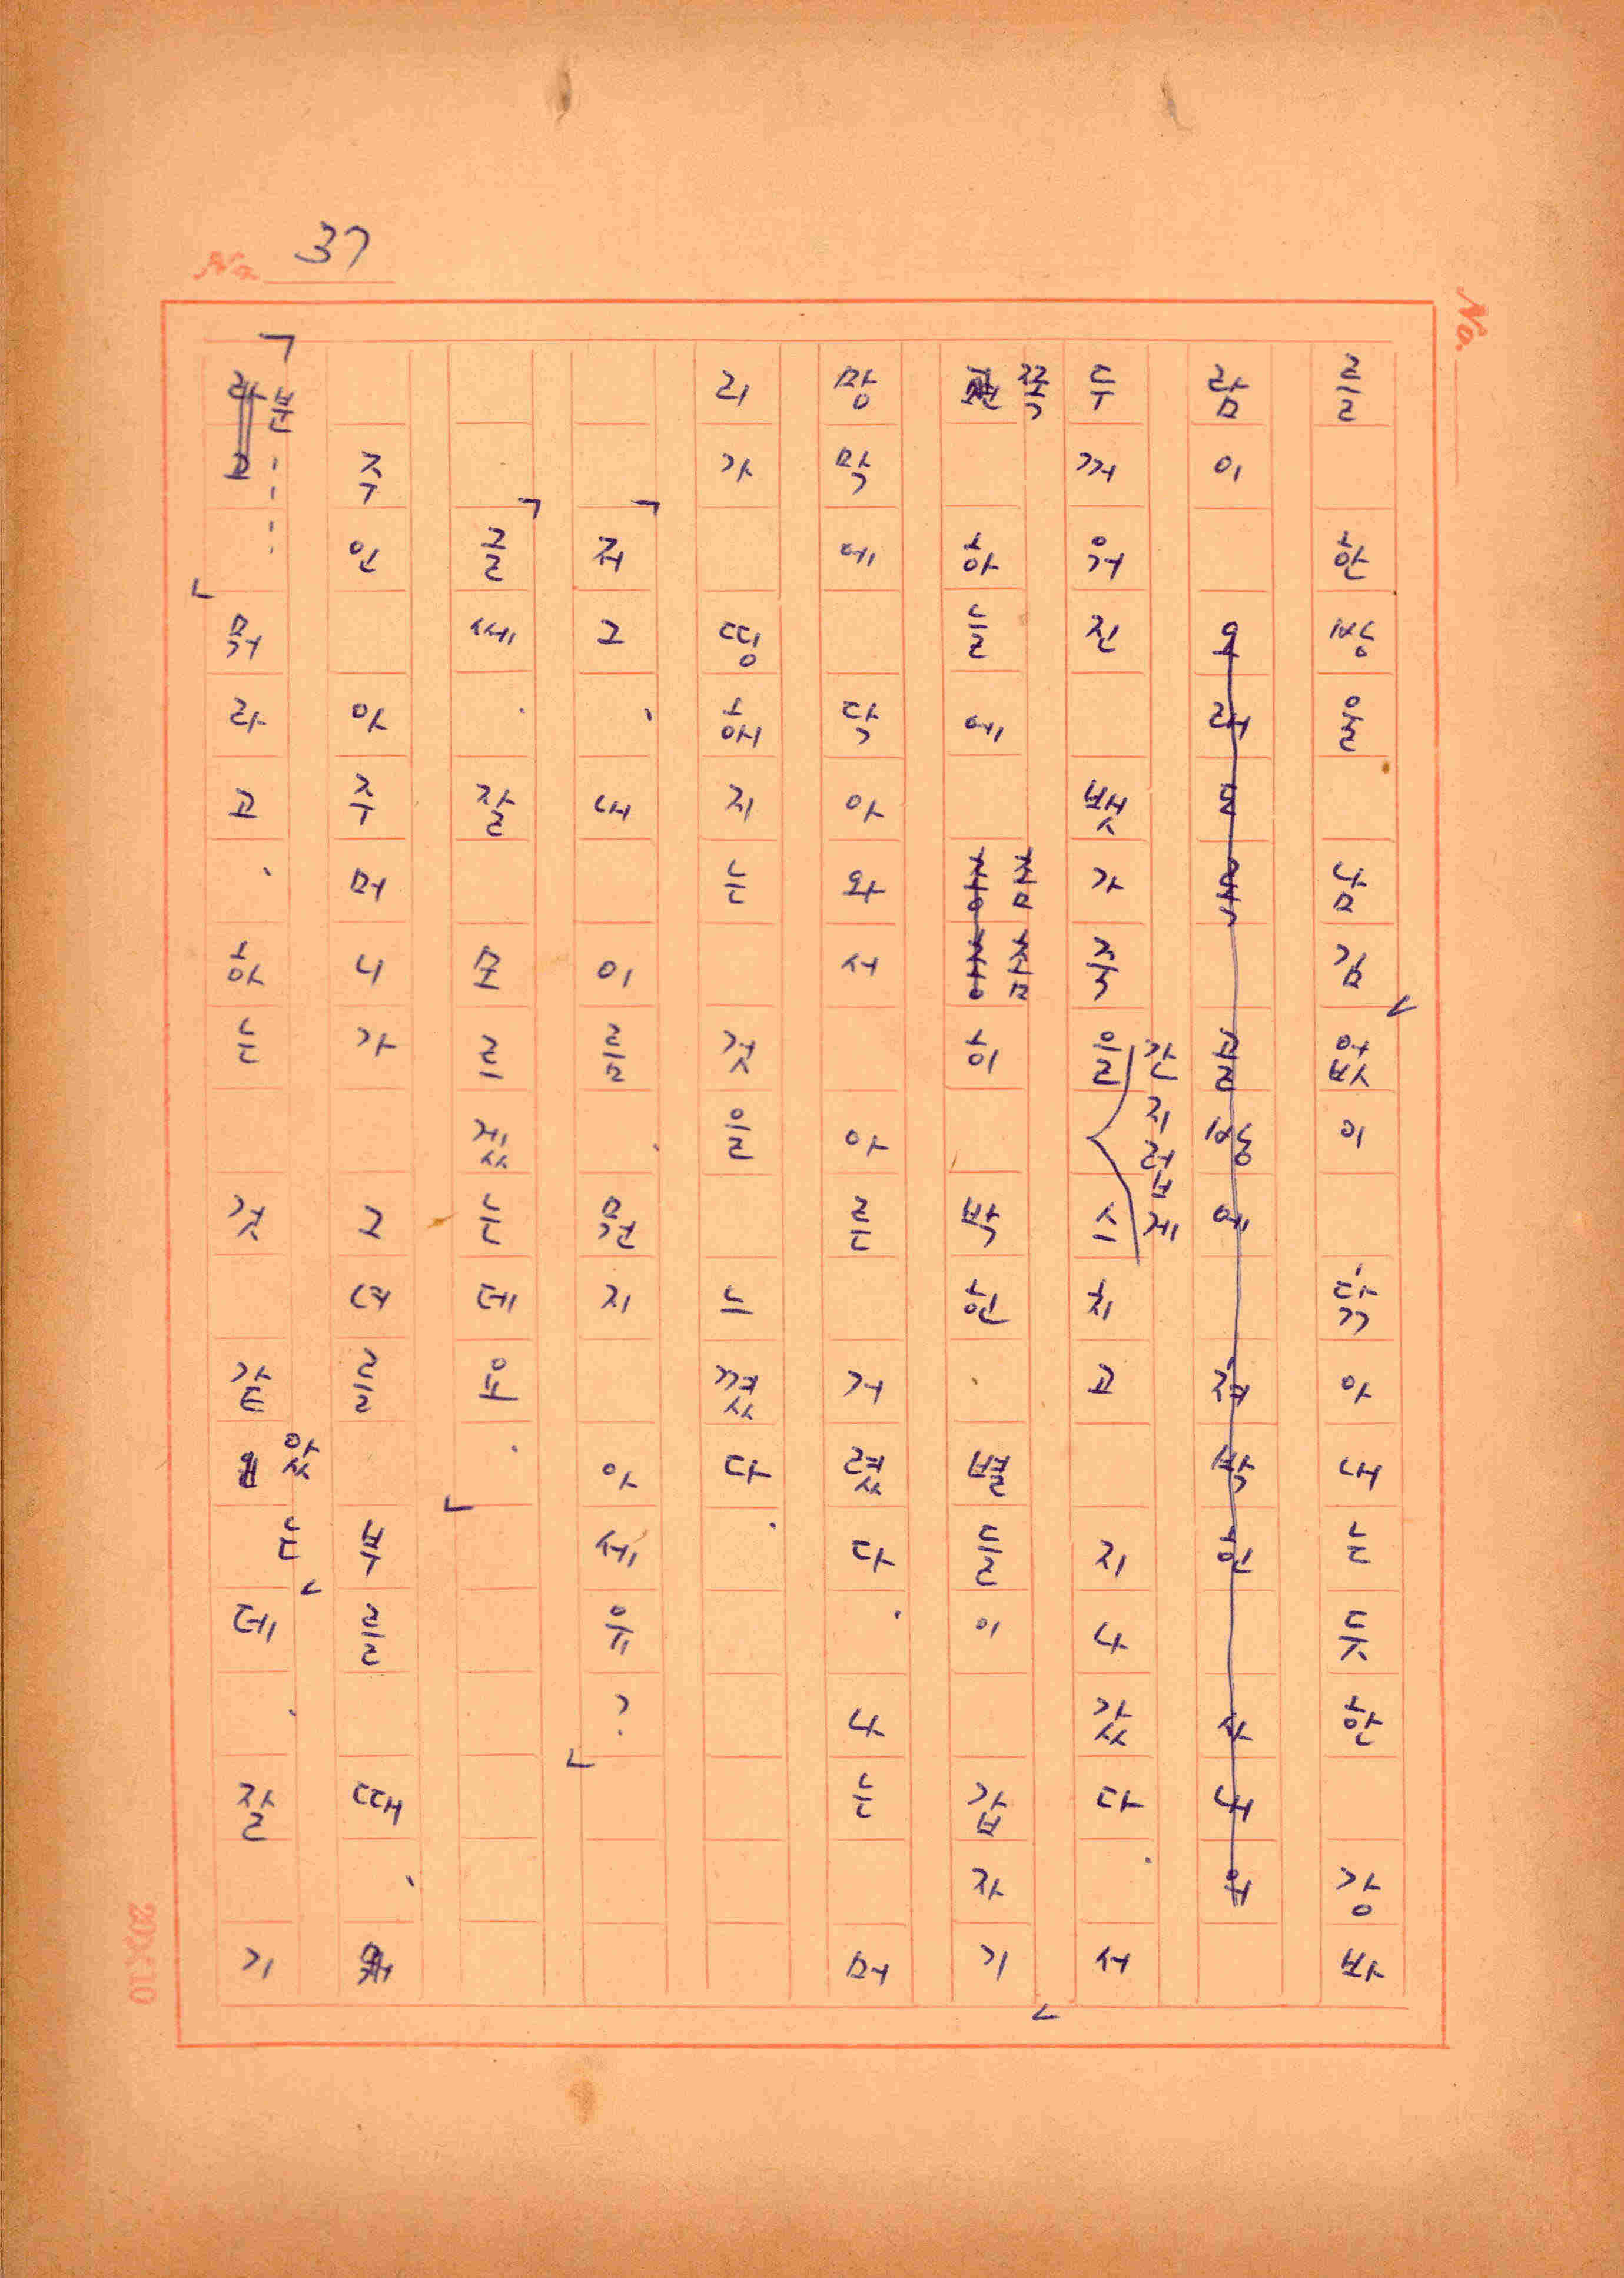 37
No.
No.
를 한방울 남김없이 닦아내는 듯한 강바
람이
두꺼워진 뱃가죽을 간지럽게 스치고 지나갔다. 서
쪽 하늘에 촘촘히 박힌, 별들이 갑자기
망막에 닥아와서 아른거렸다. 나는 머
리가 띵해지는 것을 느꼈다.
「저 그, 내 이름. 뭔지 아세유?」
「글쎄. 잘 모르겠는데유.」
주인 아주머니가 그녀를 부를 때,
「분……」 뭐라고, 하는 것 같았는데. 잘 기
20X10